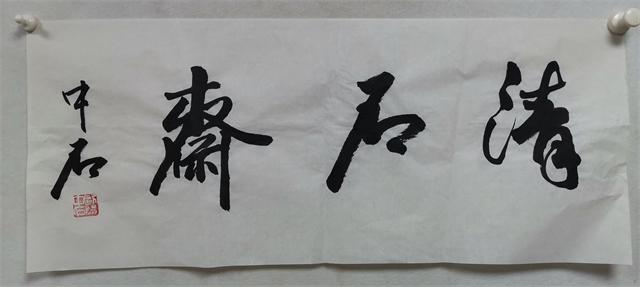 清石齋
中石